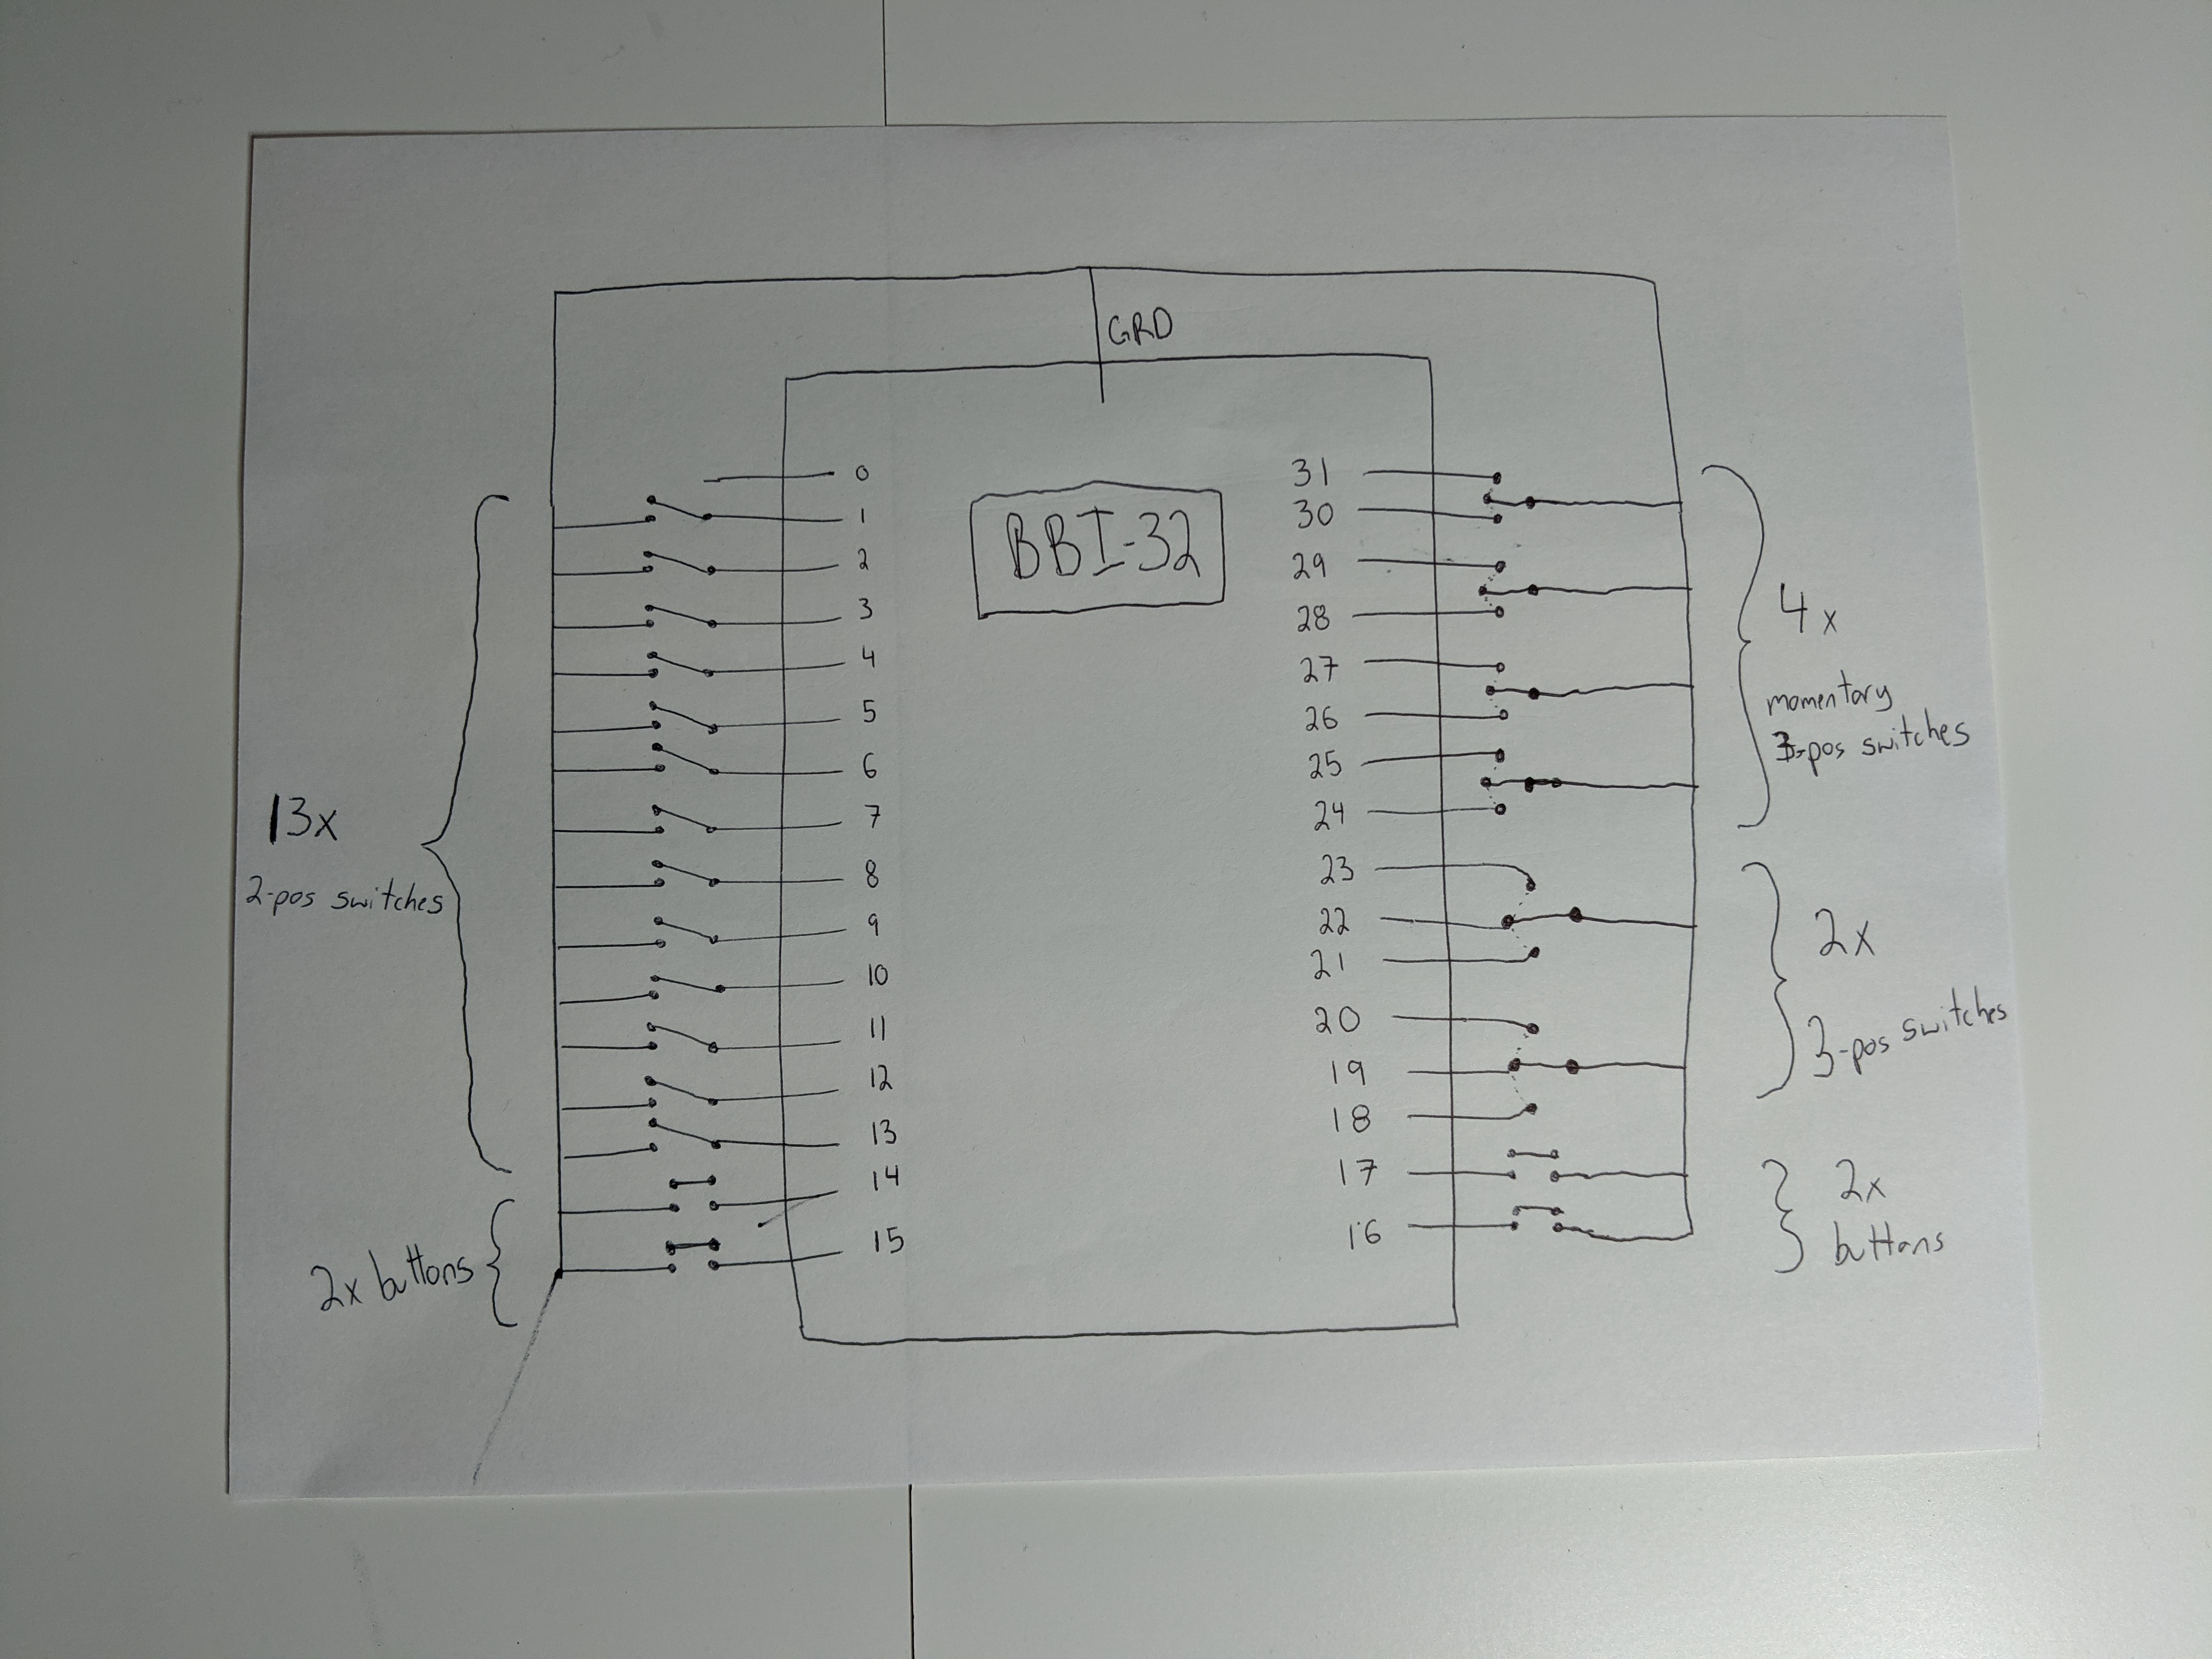 GRD
BBI-32
0
1
2
3
4
5
6
7
8
9
10
11
12
13
14
15
13x
2-pos switches
2x buttons
31
30
29
28
27
26
25
24
23
22
21
20
19
18
17
16
4x
momentary
3-pos switches
2x
3-pos switches
2x
buttons